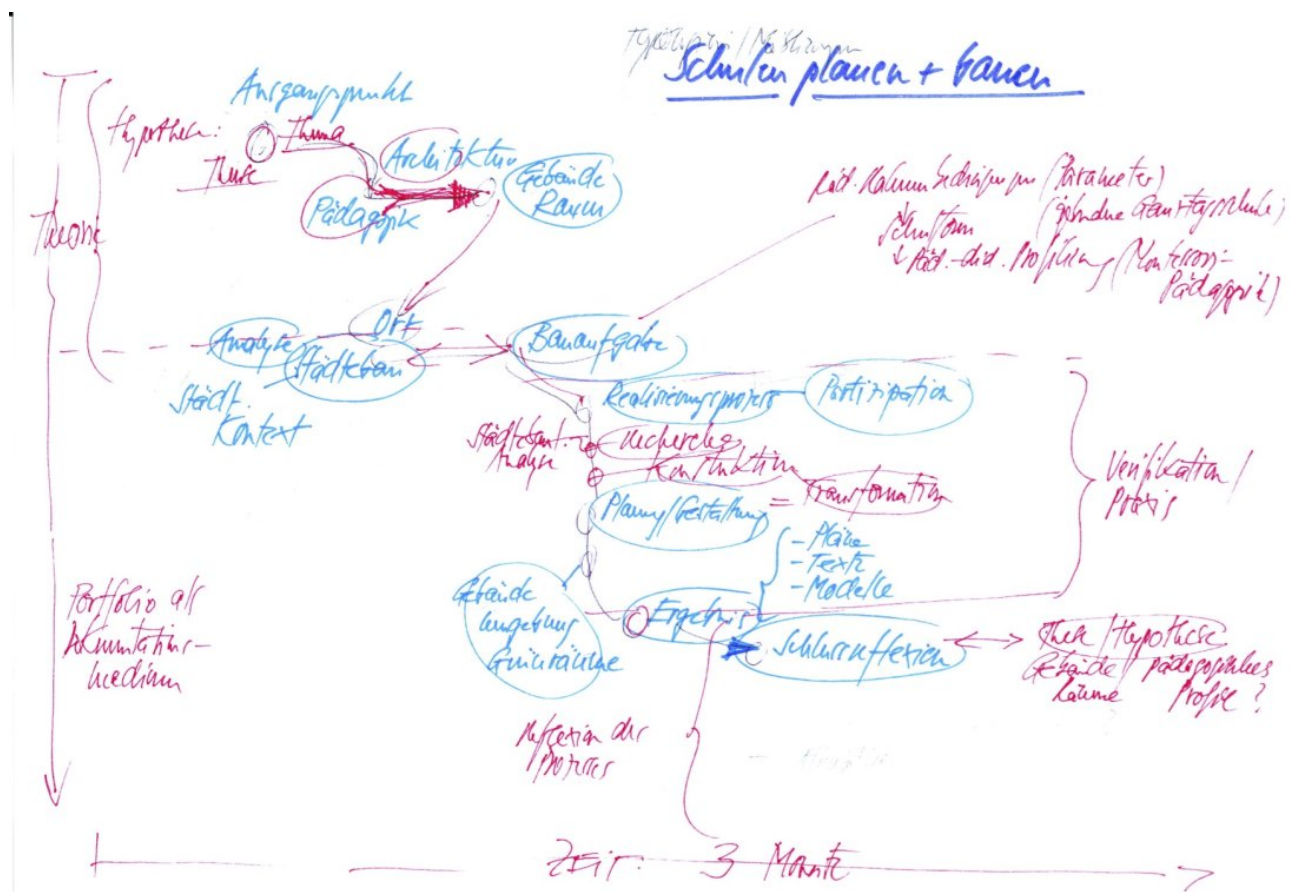 Schulen planen + bauen
Ausgangspunkt
Hypothese:
Thema
These
Architektur
Pädagogik
Gebäude
Raum
Theorie
Päd. Rahmenbedingungen (Parameter)
Schulform (gebundene Ganztagsschule)
Päd.-did. Profilierung (Montessori-
Pädagogik)
Ort
Analyse
Städtebau
Städt.
Kontext
Bauaufgabe
Realisierungsprozess
Partizipation
Städtebaul.
Analyse
Recherche
Konstruktion
Planung/Gestaltung
= Transformation
Verifikation/
Praxis
- Pläne
- Texte
- Modelle
Gebäude
Umgebung
Grünräume
Ergebnis
Schlussreflexion
These/Hypothese
Gebäude/ pädagogisches
Räume Profil?
Portfolio als
Dokumentations-
medium
Reflexion des
Prozesses
ZEIT: 3 Monate